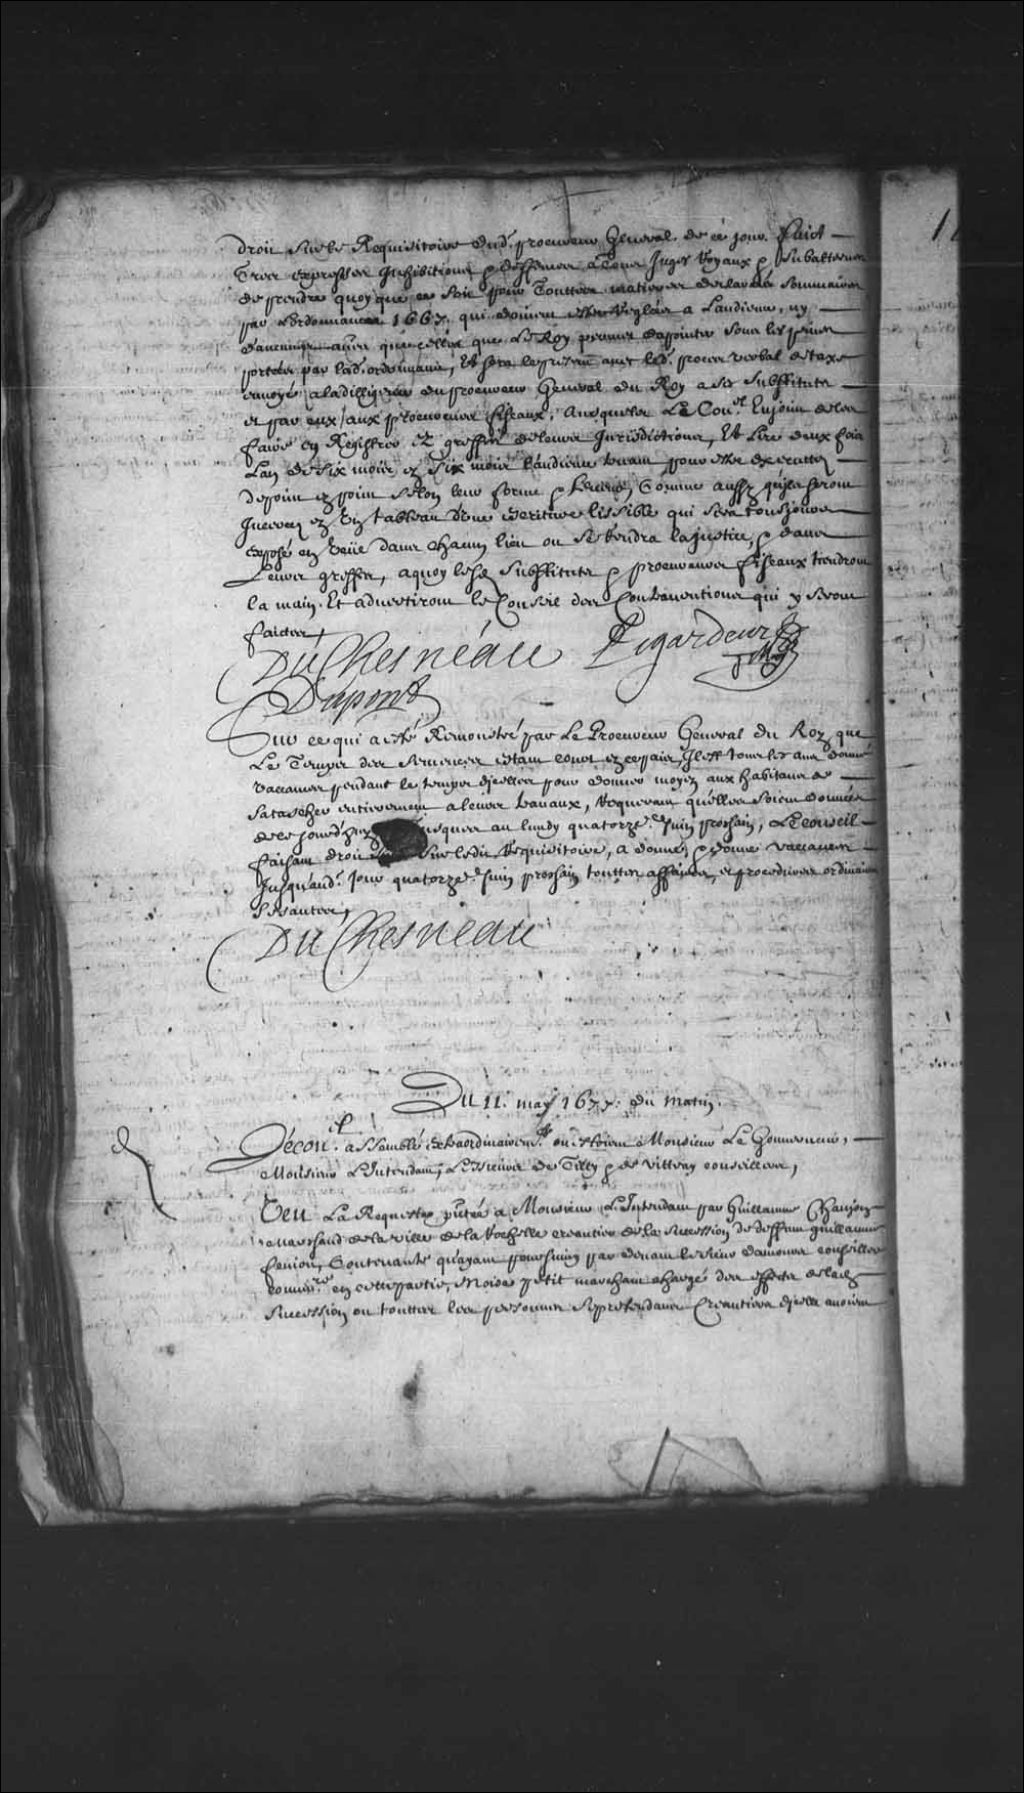 droit sur le Requisitoire dud. procureur General de ce jour. Faict
Tres expresses Inhibitions & deffenses a tous Juges Royaux & subalternes
de prendre quoy que ce soit pour Touttes matieres declarées sommaires
par L'ordonnance 1667. qui doivent estre reglées a L'audience, ny
d'aucunes autres que celles que Le Roy permet d'apointer sous les peines
portées par lad. ordonnance, Et sera le present avec led. procez verbal de taxe
envoyé a la dilligence du procureur General du Roy a ses substituts
et par eux aux procureurs fiscaux, Ausquels Le Con.el Enjoint de les
faire Registrer ez greffes de leurs Jurisdictions, Et lire deux fois
L'an de six mois en six mois L'audience tenant pour estre executez
de point en point selon leur forme & teneur, Comme aussy qu'ils seront
Inserez en un tableau d'une escriture lissible qui sera tousjours
exposé en veüe dans chacun lieu ou se tendra la justice, & dans
Leurs greffes, a quoy lesd. substituts & procureurs fiscaux tiendront
la main. Et advertiront le Conseil des Contraventions qui y seront
faictes
DuChesneau
Dupont
Sur ce qui a esté Remonstré par Le Procureur General du Roy que
Le Temps des semences estant
vaccances pendant le temps d'icelles pour donner moyen aux habitans de
s'atascher entierement a leurs travaux, Requerant qu'elles soient données
de ce jourd'huy jusques au lundy quatorze.e Juin prochain, Le Conseil
faisant droit sur ledit Requisitoire, a donné & donne vaccances
Jusqu'aud. jour quatorze.e Juin prochain touttes affaires et procedures ordinaires
cessantes,
DuChesneau
Du 11. may 1677. du matin.
Le Con.el assemblé extraordinairem.t ou estoient Monsieur Le Gouverneur,
Monsieur L'Intendant, Les sieurs de Tilly & de Vitray conseillers,
Veu La Requeste p.ntée a Monsieur L'Intendant par Guillaume Chanjon
marchand de la ville de la Rochelle creantier de la succession de deffunt Guillaume
feniou, Contenante qu'ayant poursuivy par devant le sieur Damours conseiller
commis.re en cette partie, Moise petit marchant chargé des effects de lad.
succession ou touttes les personnes se pretendans Creantiers d'icelle avoient